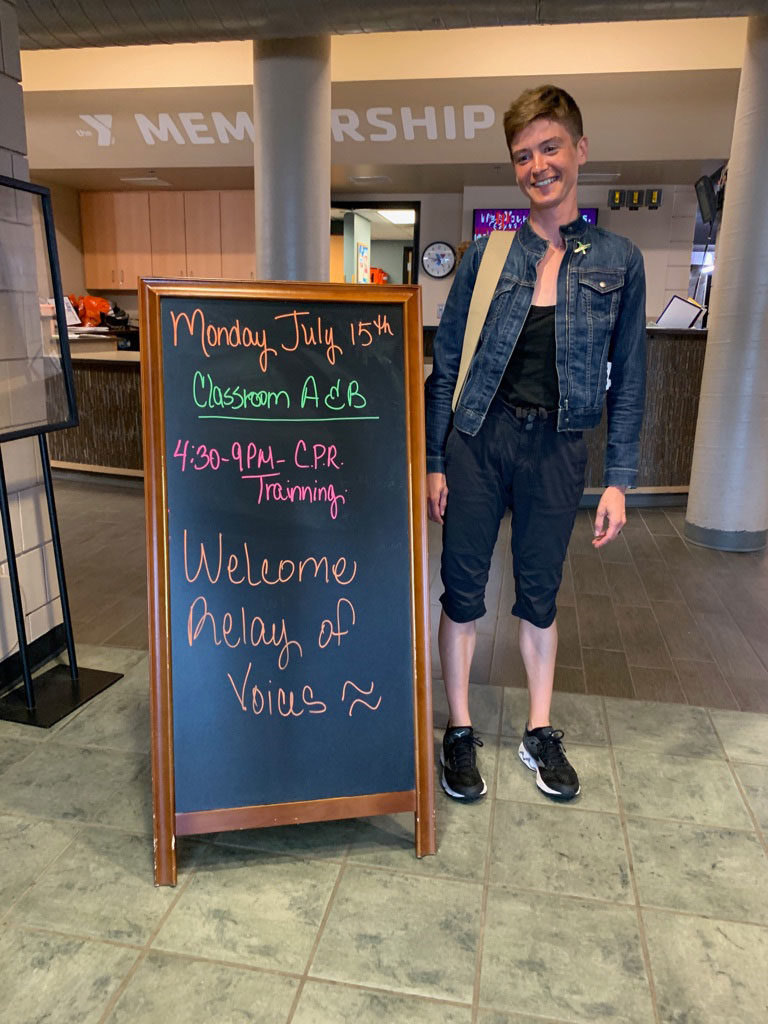 the Y MEMBERSHIP
Monday July 15th
Classroom A & B
4:30-9PM- C.P.R.
Trainning.
Welcome
Relay of
Voices ~